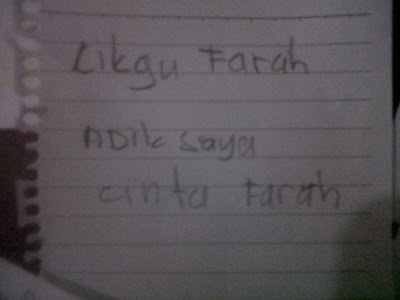 Likgu Farah
ADik saya
cinta Farah